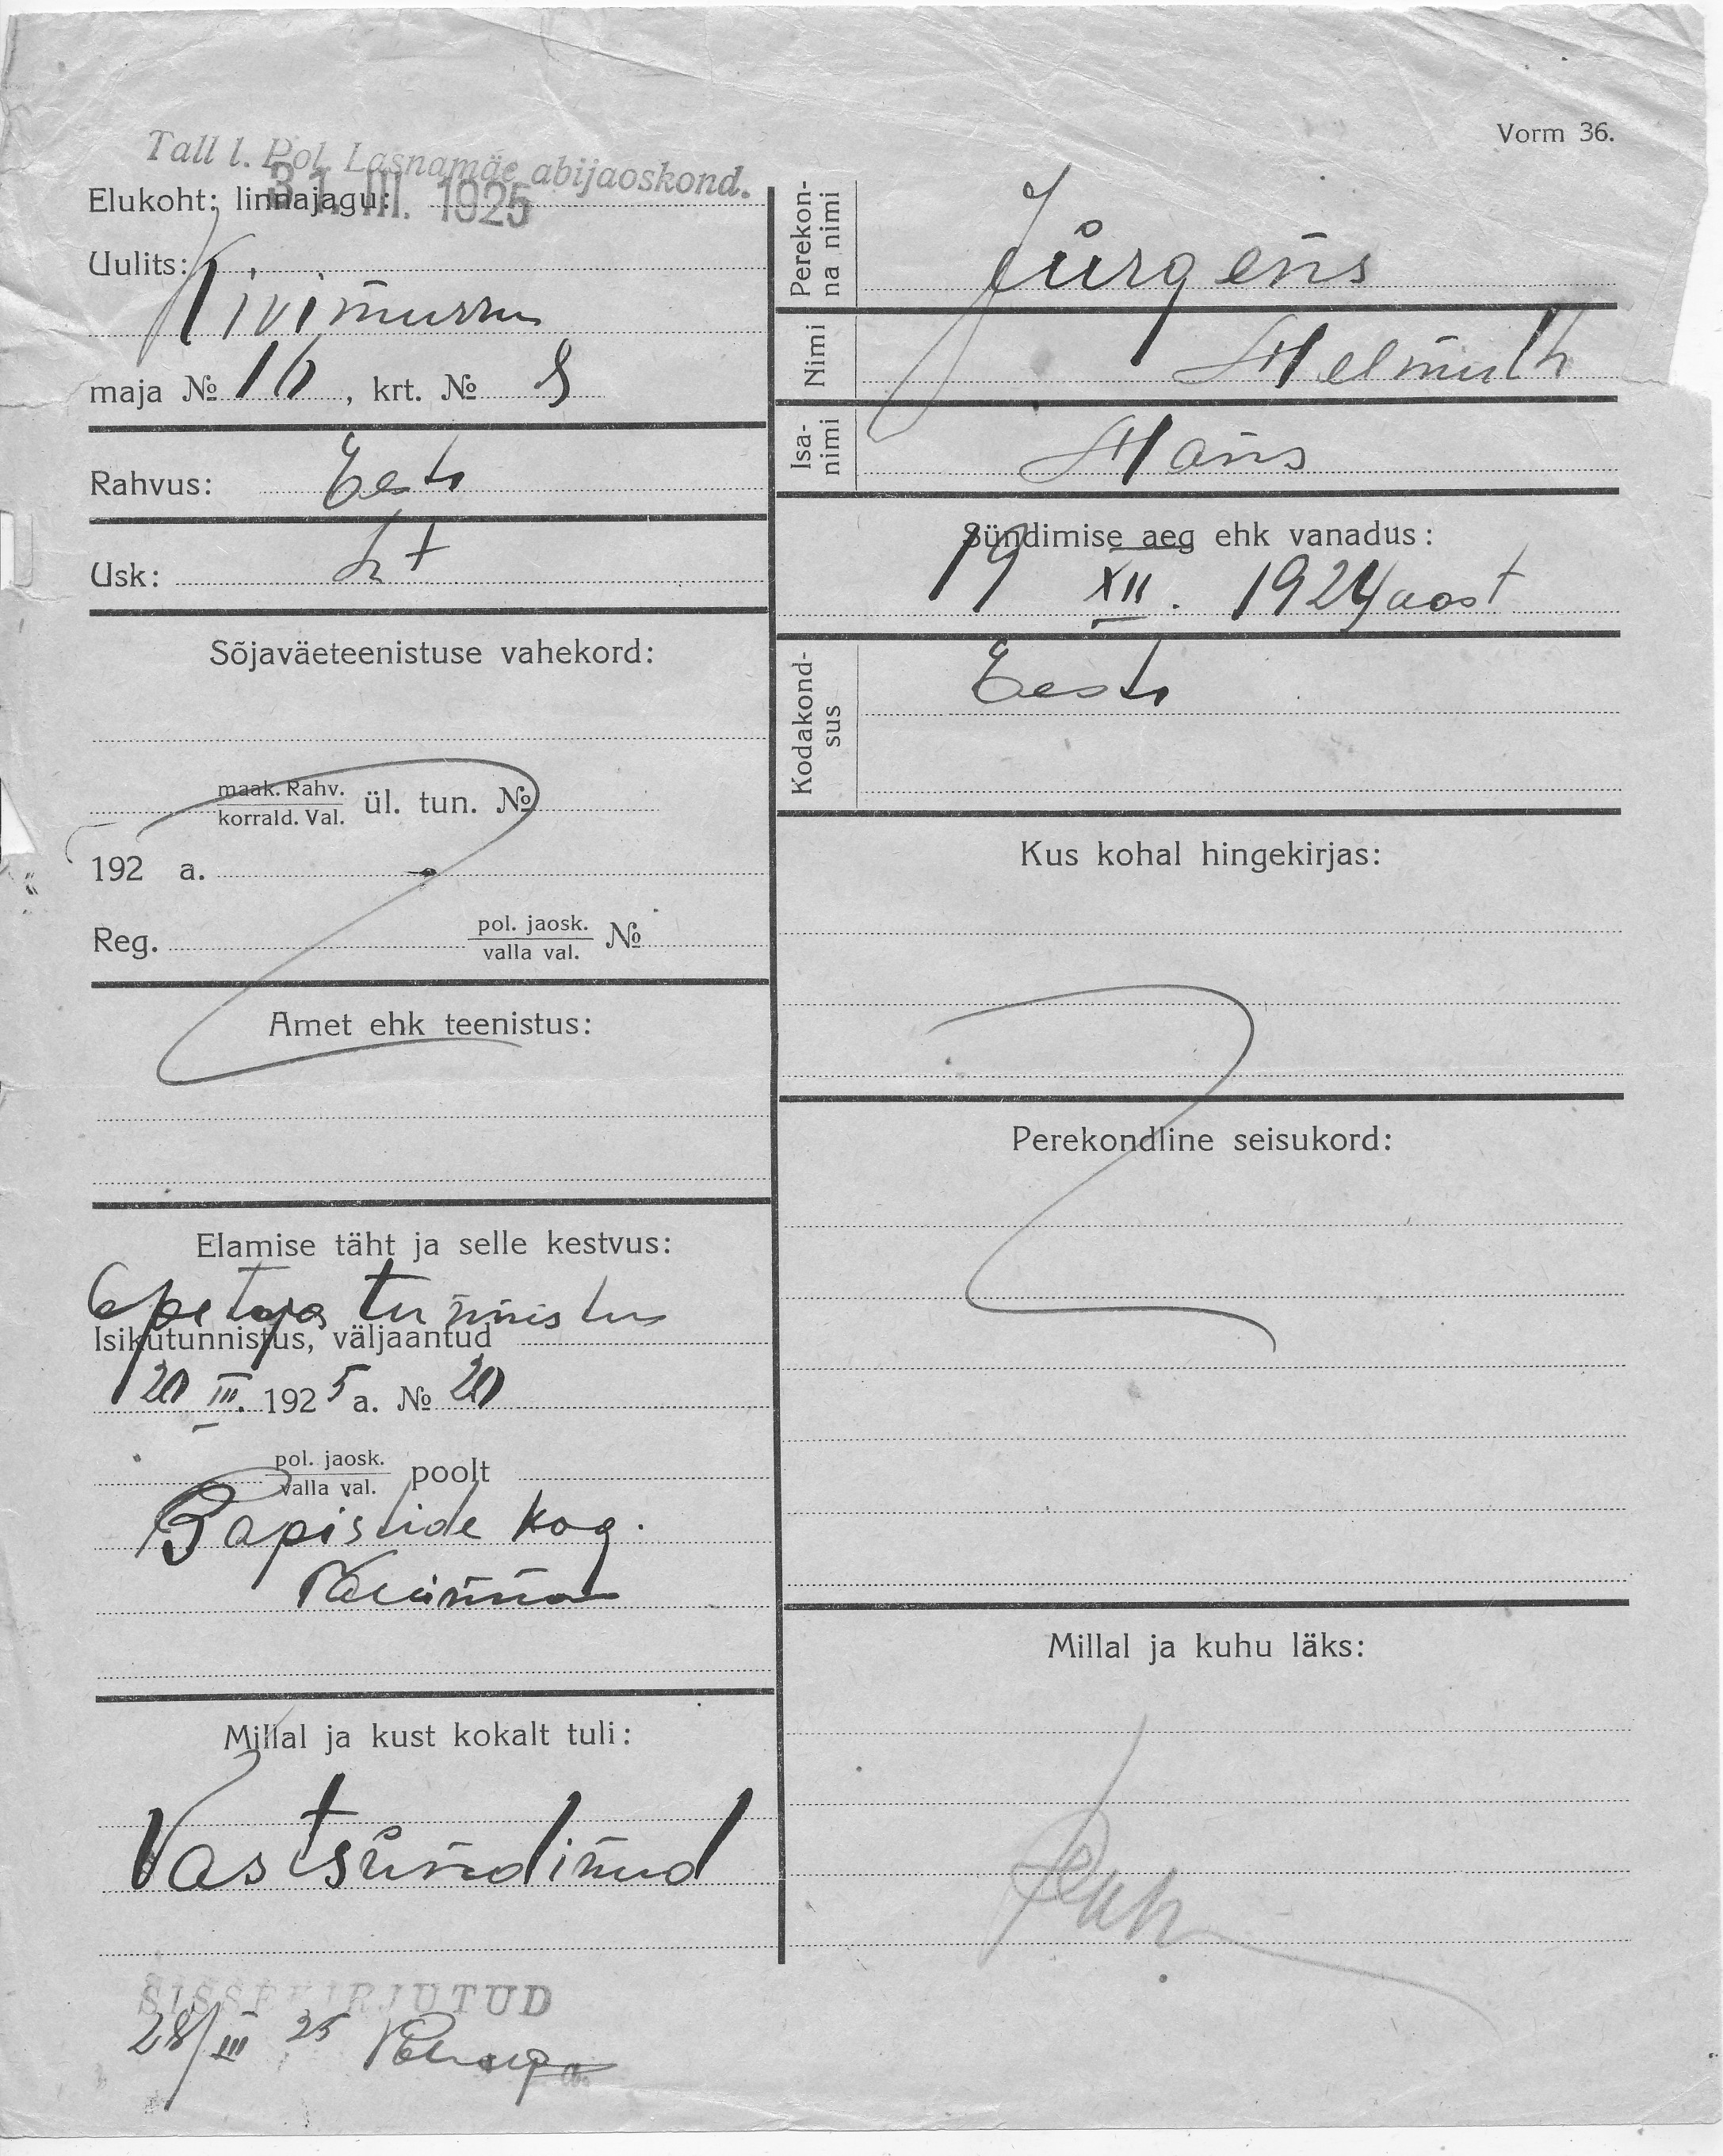 Vorm 36.
Tall l. Pol. Lasnamäe abijaoskond.
31. III. 1925
Elukoht: linnajagu:
Uulits:
Kivimurru
maja № 16, krt. № 8
Rahvus: Eesti
Usk: Lt
Sõjaväeteenistuse vahekord:
maak. Rahv.
korrald. Val. ül. tun. №
192 a.
Reg. pol. jaosk.
valla val. №
Amet ehk teenistus:
Elamise täht ja selle kestvus:
Õpetaja tunnistus
Isikutunnistus, väljaantud
20 III. 1925 a. № 20
pol. jaosk.
valla val. poolt
Bapistide kog.
Tallinna
Millal ja kust kokalt tuli:
Vastsündinud
SISSEKIRJUTUD
28/III 25
Perekon-
na nimi
Jürgens
Nimi
Helmuth
Isa-
nimi
Hans
Sündimise aeg ehk vanadus:
19 XII. 1924 aast
Kodakond-
sus
Eesti
Kus kohal hingekirjas:
Perekondline seisukord:
Millal ja kuhu läks: